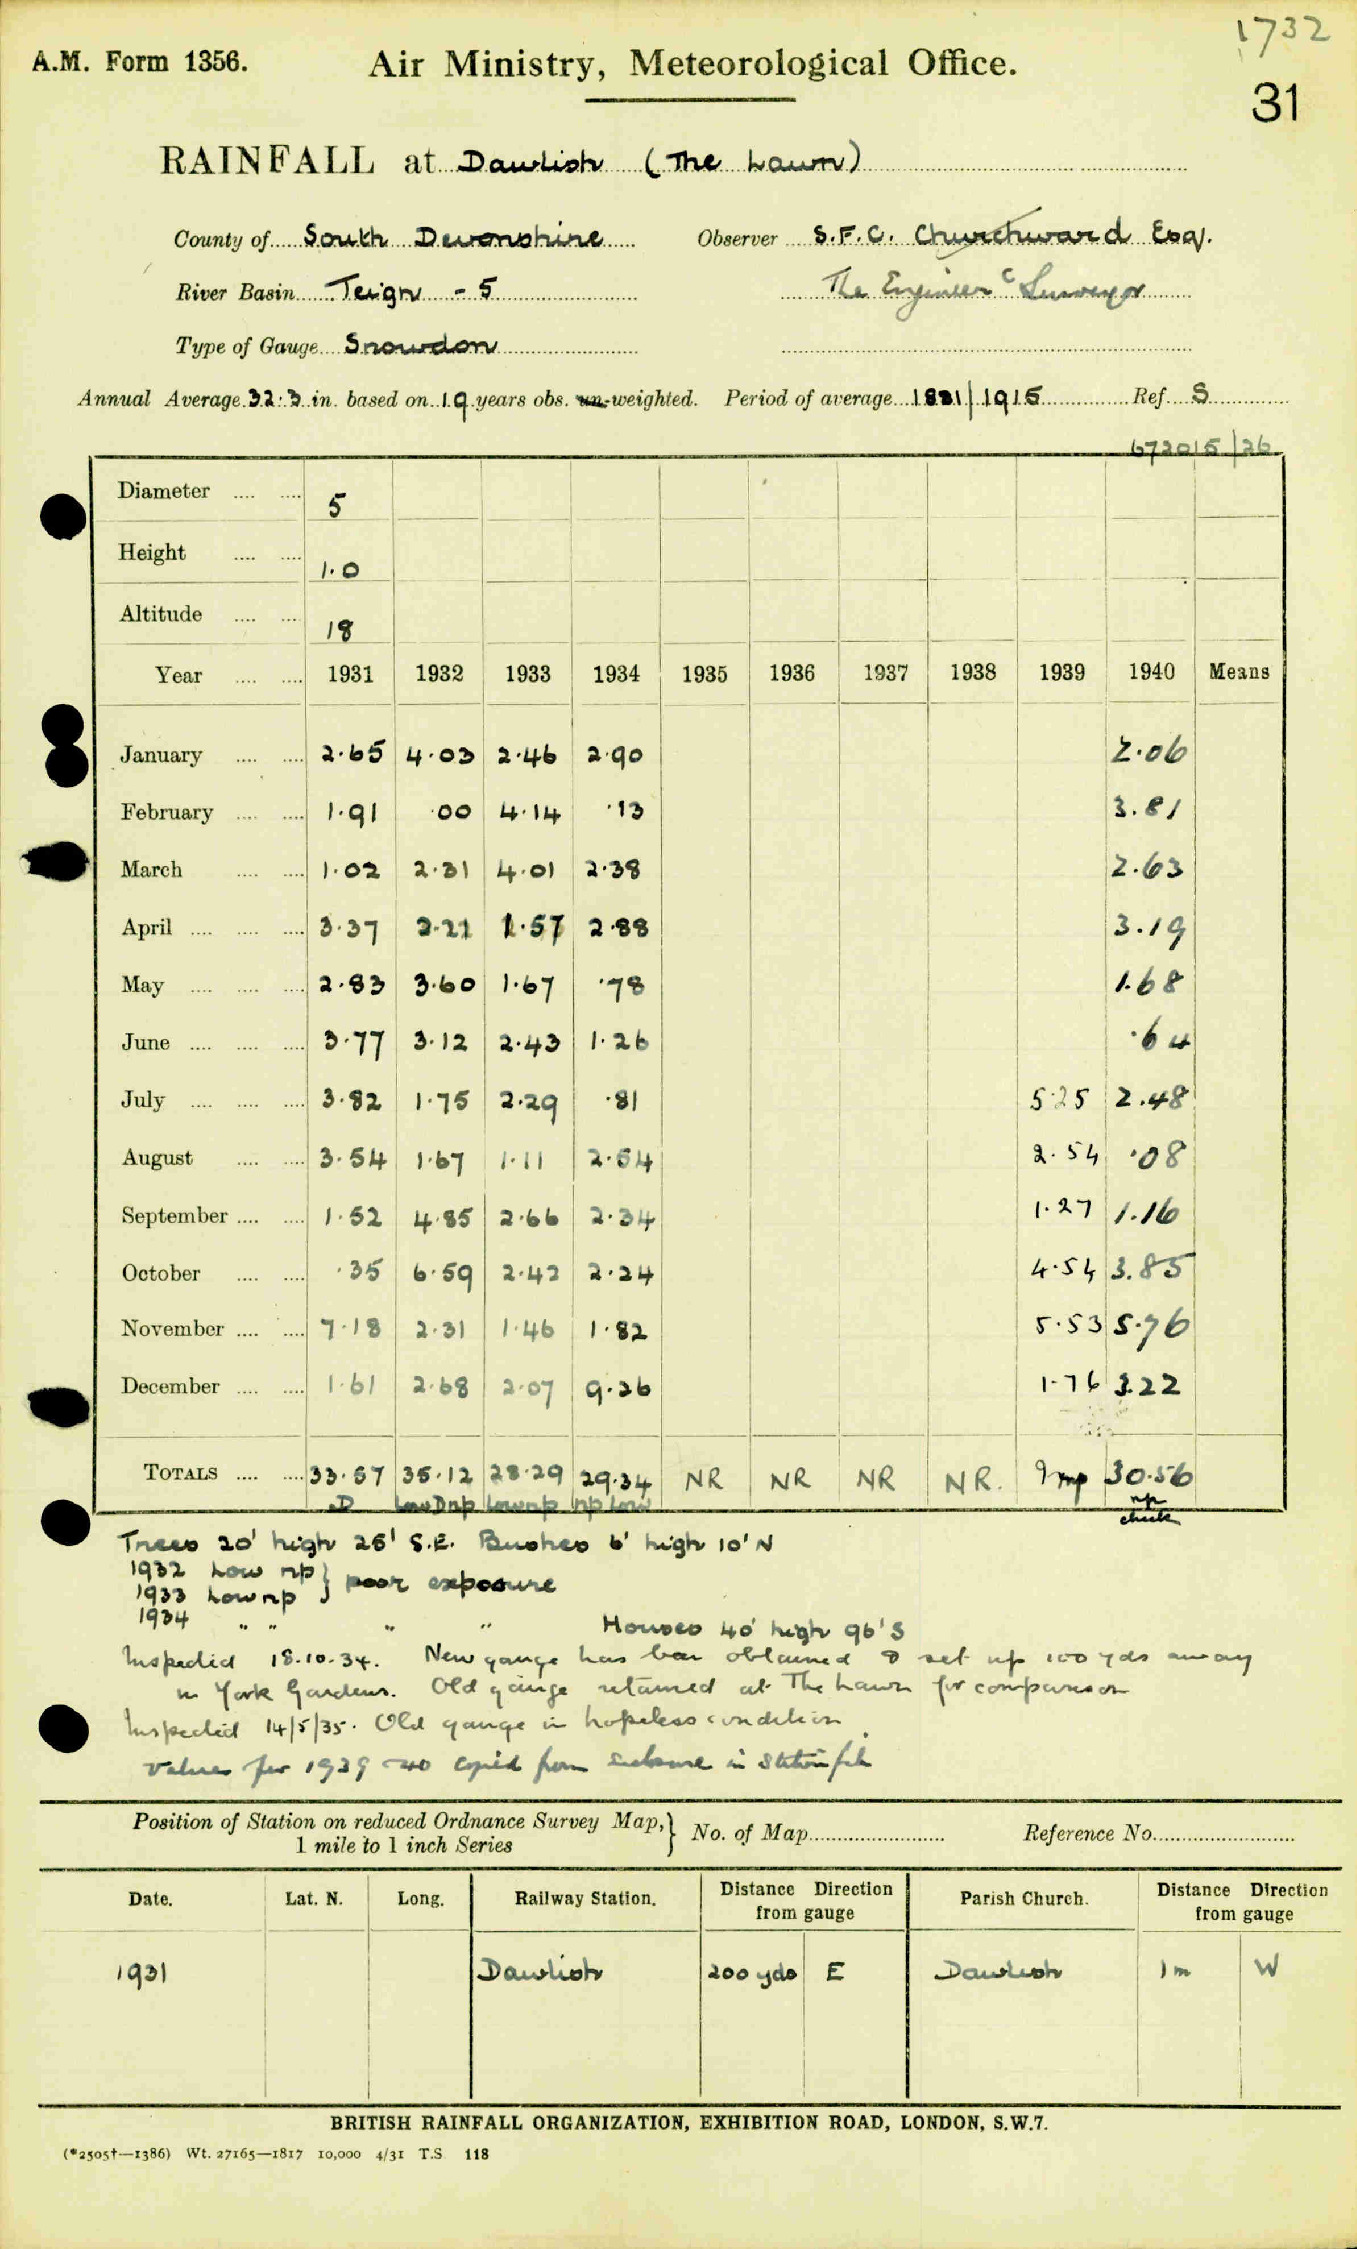 1732
A.M. Form 1356. Air Ministry, Meteorological Office.
31
RAINFALL at Dawlish (The Lawn)
County of South Devonshire Observer S.F.C. Churchward Esq.
River Basin Teign - 5 The Engineer & Surveyor
Type of Gauge Snowdon
Annual Average 32.3 in. based on 19 years obs. un-weighted. Period of average 1881/1915 Ref. S
672015/26
Diameter .... .... 5
Height .... .... 1.0
Altitude .... .... 18
Year .... .... 1931 1932 1933 1934 1935 1936 1937 1938 1939 1940 Means
January .... .... 2.65 4.03 2.46 2.90 2.06
February .... .... 1.91 .00 4.14 .13 3.81
March .... .... 1.02 2.31 4.01 2.38 2.63
April .... .... .... 3.37 2.21 1.57 2.88 3.19
May .... .... .... 2.83 3.60 1.67 .78 1.68
June .... .... .... 3.77 3.12 2.43 1.26 .64
July .... .... .... 3.82 1.75 2.29 .81 5.25 2.48
August .... .... 3.54 1.67 1.11 2.54 2.54 .08
September .... .... 1.52 4.85 2.66 2.34 1.27 1.16
October .... .... .35 6.59 2.42 2.24 4.54 3.85
November .... .... 7.18 2.31 1.46 1.82 5.53 5.76
December .... .... 1.61 2.68 2.07 9.26 1.76 3.22
TOTALS .... .... 33.57 35.12 28.29 29.34 NR NR NR NR. 30.56
D Low D np Low np np Low np
check
Trees 20' high 25' S.E. Bushes 6' high 10' N
1932 Low np } poor exposure
1933 Low np
1934 " " " " Houses 40' high 96' S
Inspected 18.10.34. New gauge has been obtained & set up 100 yds away
in York Gardens. Old gauge retained at The Lawn for comparison
Inspected 14/5/35. Old gauge in hopeless condition.
Values for 1939-40 copied from enclosure in Station file
Position of Station on reduced Ordnance Survey Map, } No. of Map Reference No.
1 mile to 1 inch Series
Date. Lat. N. Long. Railway Station. Distance Direction from gauge Parish Church. Distance Direction from gauge
1931 Dawlish 200 yds E Dawlish 1 m W
BRITISH RAINFALL ORGANIZATION, EXHIBITION ROAD, LONDON, S.W.7.
(*2505†—1386) Wt. 27165—1817 10,000 4/31 T.S 118